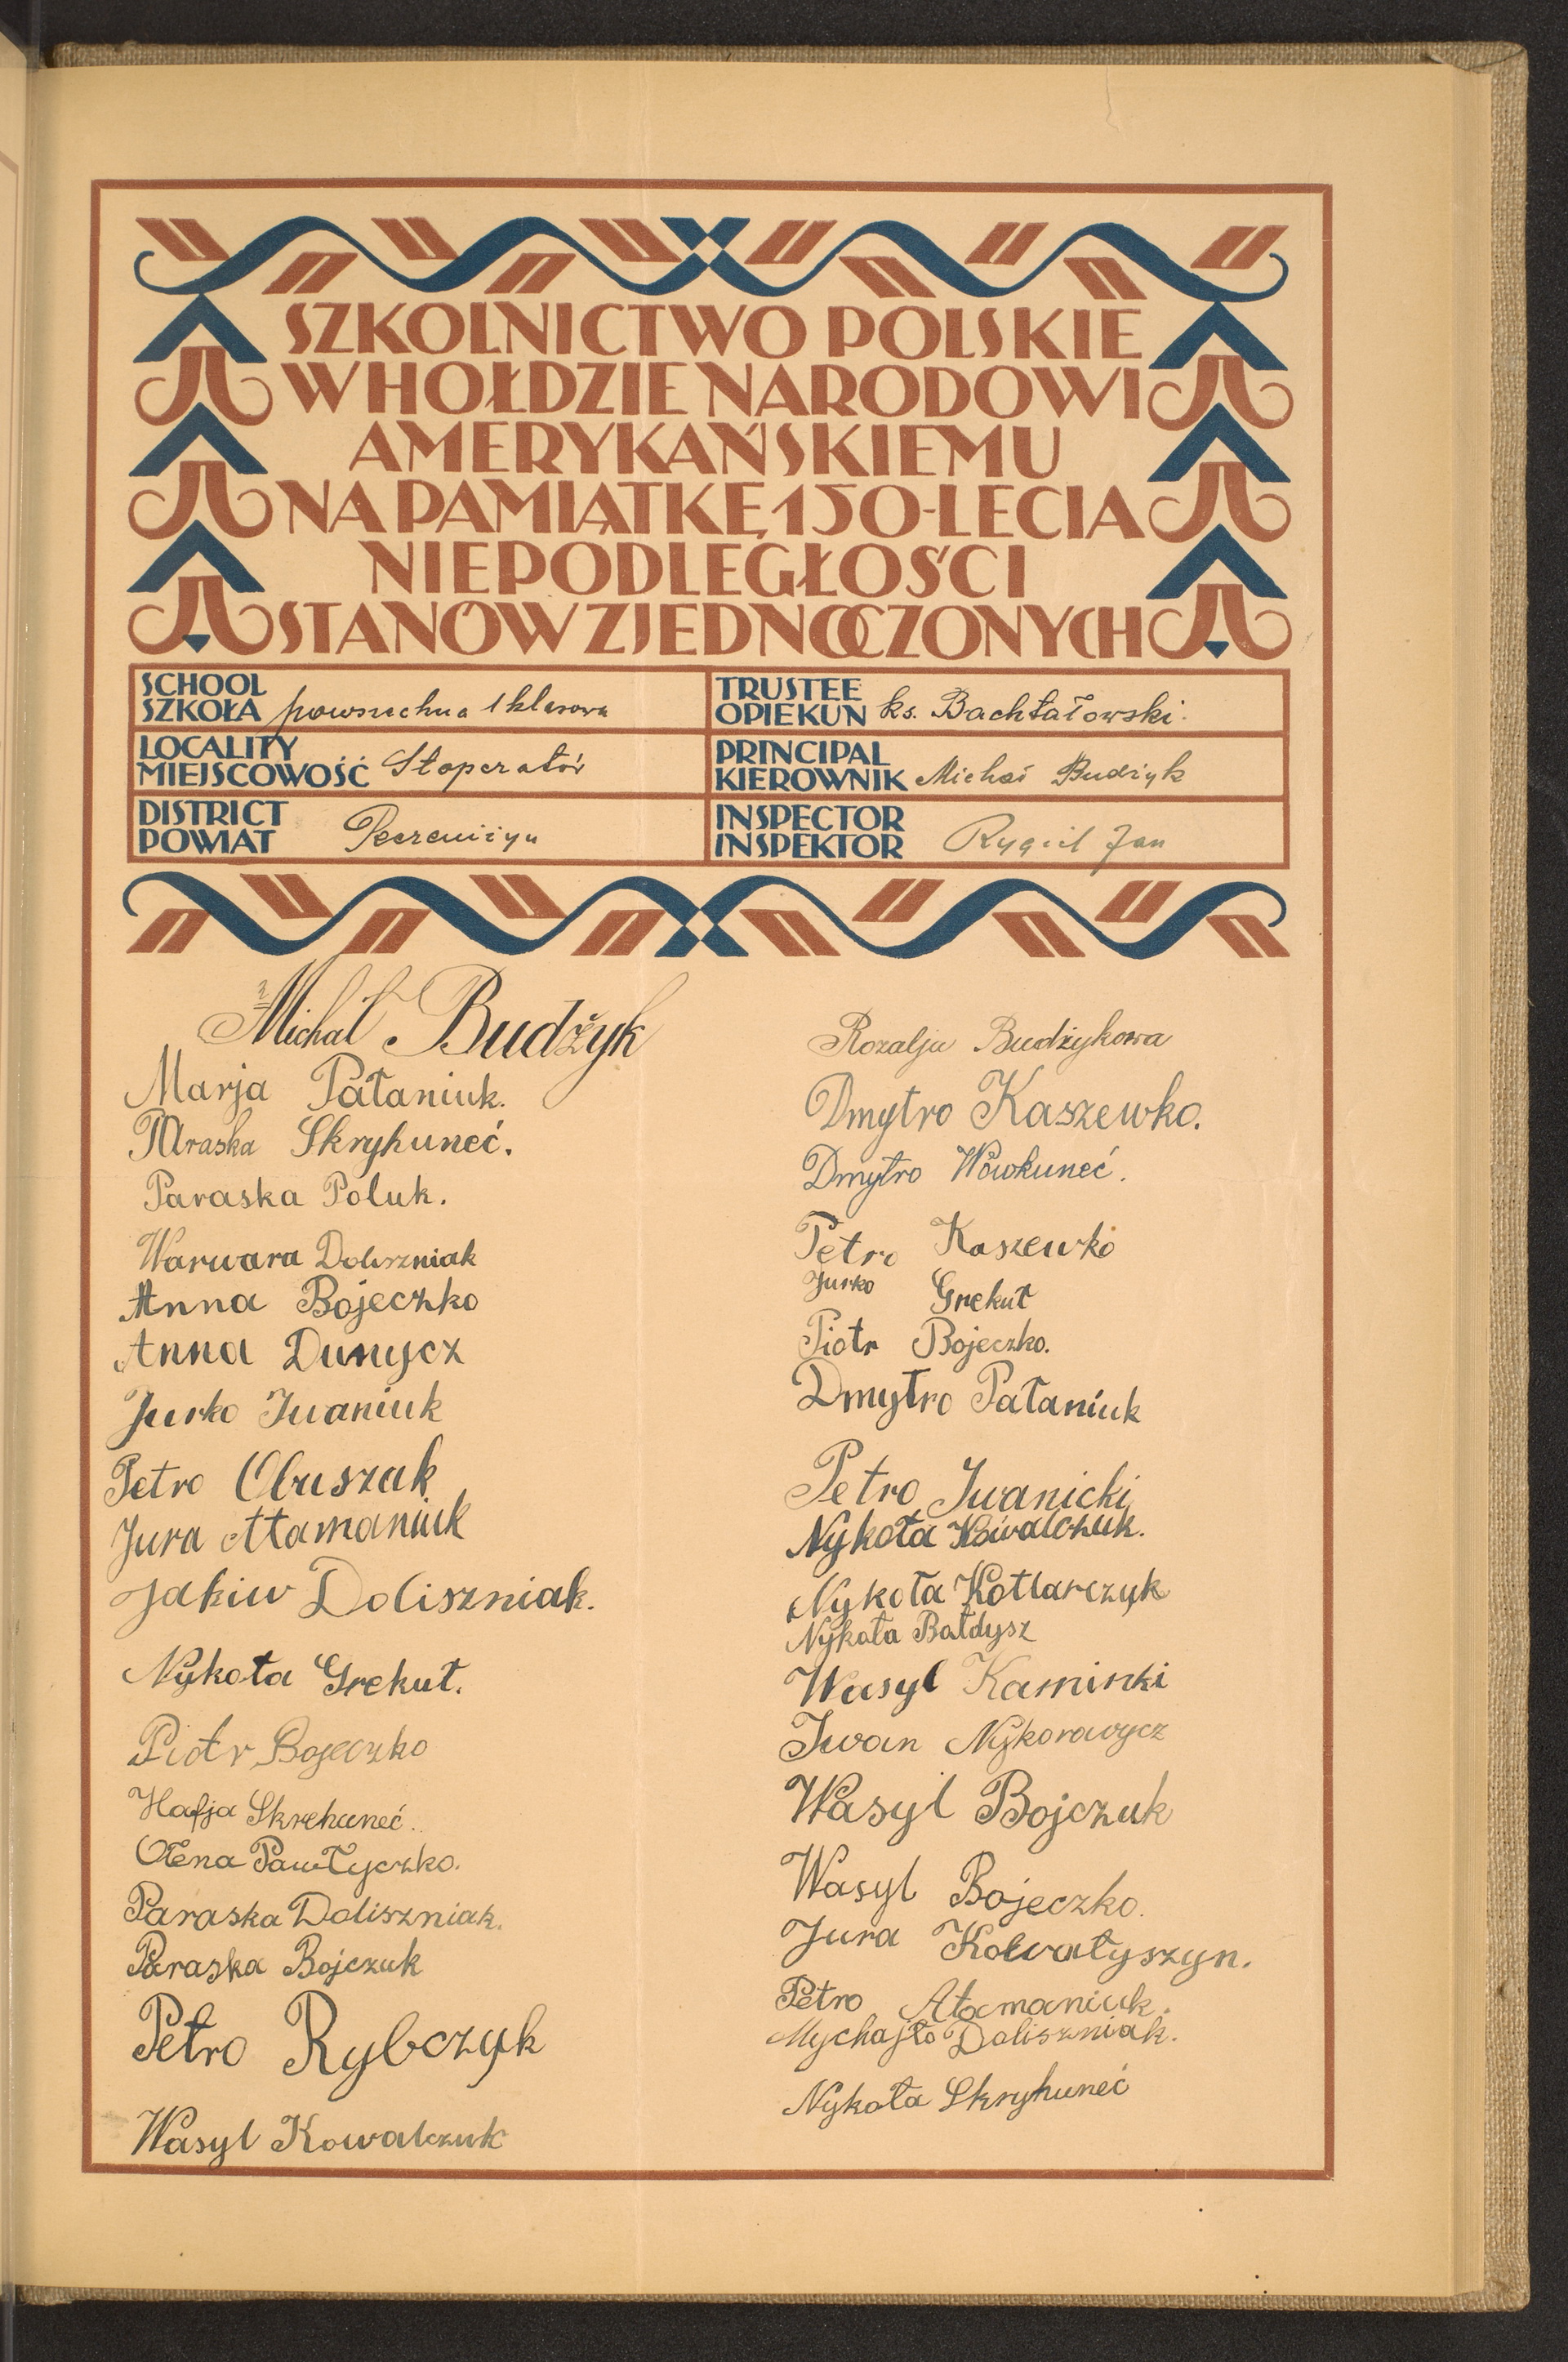 SZKOLNICTWO POLSKIE
W HOŁDZIE NARODOWI
AMERYKAŃSKIEMU
NA PAMIĄTKĘ 150-LECIA
NIEPODLEGŁOŚCI
STANÓW ZJEDNOCZONYCH
SCHOOL
SZKOŁA powszechna 1 klasowa
TRUSTEE
OPIEKUN ks. Bachtałowski.
LOCALITY
MIEJSCOWOŚĆ Stopczatów
PRINCIPAL
KIEROWNIK Michał Budżyk
DISTRICT
POWIAT Peczeniżyn
INSPECTOR
INSPEKTOR Rygiel Jan
Michał Budżyk
Marja Pałaniuk.
Paraska Skryhuneć.
Paraska Poluk.
Warwara Doliszniak
Anna Bojeczko
Anna Dunycz
Jurko Iwaniuk
Petro Obuszak
Jura Atamaniuk
Jakiw Doliszniak.
Nykoła Grekut.
Piotr Bojeczko
Hafja Skrehuneć.
Ołena Pawłyczko.
Paraska Doliszniak.
Paraska Bojczuk
Petro Rybczyk
Wasyl Kowalczuk
Rozalja Budżykowa
Dmytro Kaszewko.
Dmytro Wowkuneć.
Petro Kaszewko
Jurko Grekut
Piotr Bojeczko.
Dmytro Pałaniuk
Petro Iwanicki
Nykoła Kowalczuk.
Nykoła Kotlarczyk
Nykoła Bałdysz
Wasyl Kaminki
Iwan Nykorowycz
Wasyl Bojczuk
Wasyl Bojeczko.
Jura Kowałyszyn.
Petro Atamaniuk.
Mychajło Doliszniak.
Nykoła Skryhuneć